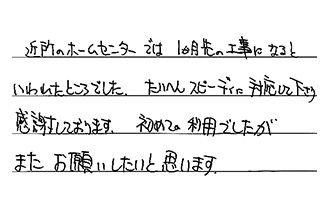 近所のホームセンターでは 1ヵ月先の工事になると
いわれたところでした。たいへんスピーディに対応して下さり
感謝しております。 初めての利用でしたが
また お願いしたいと思います。